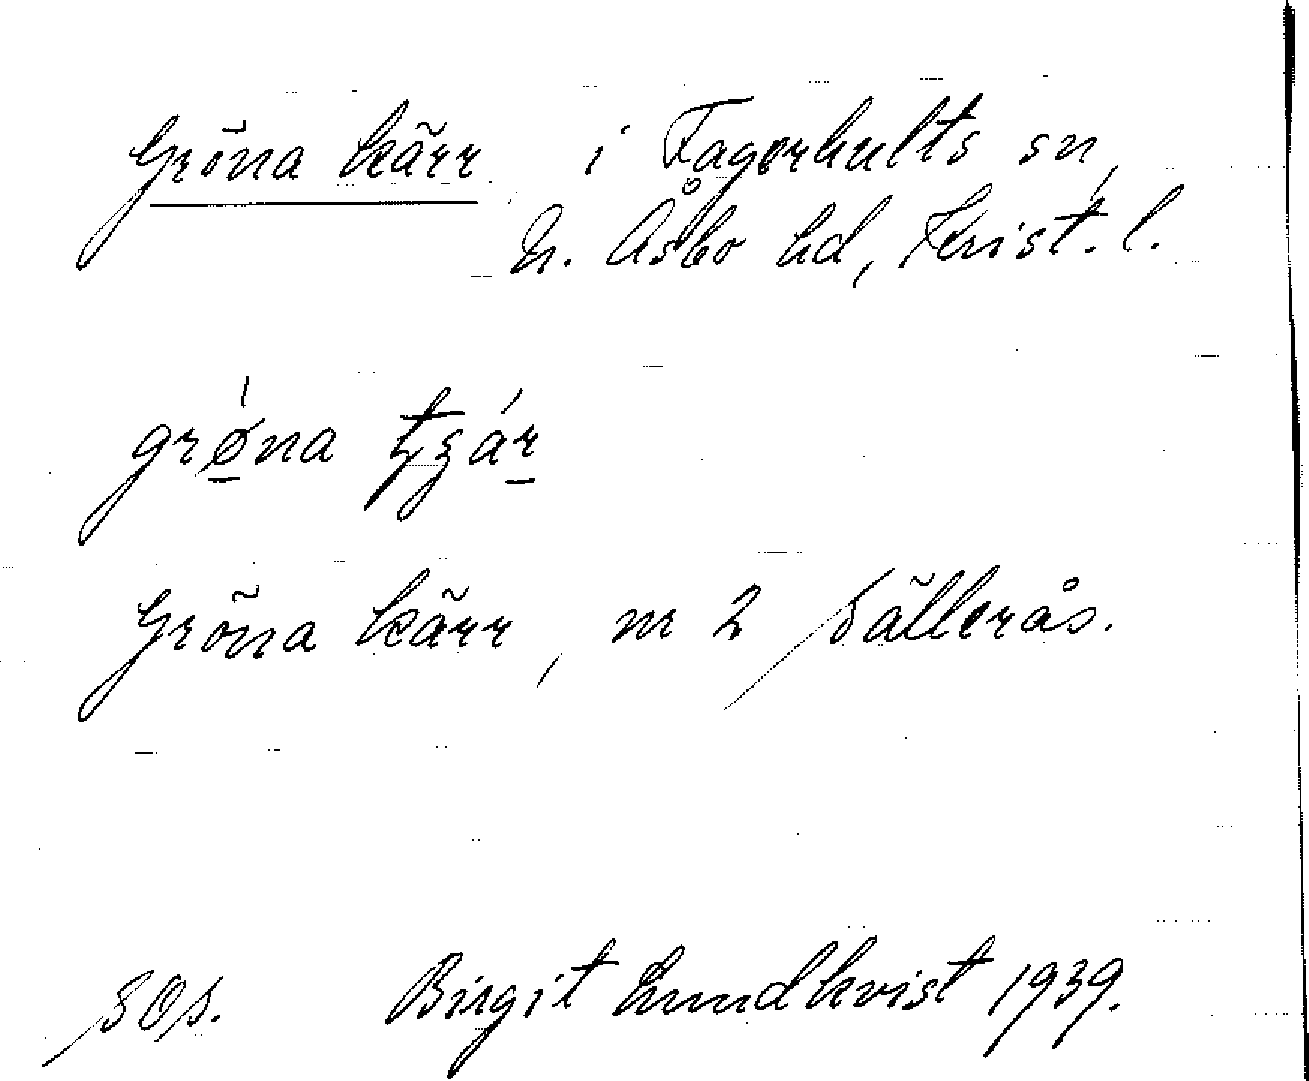 Gröna kärr i Fagerhults sn,
N. Åsbo hd, Krist. l.
grǿna tzár
Gröna kärr, m 2 Sällerås.
sos. Birgit Lundkvist 1939.